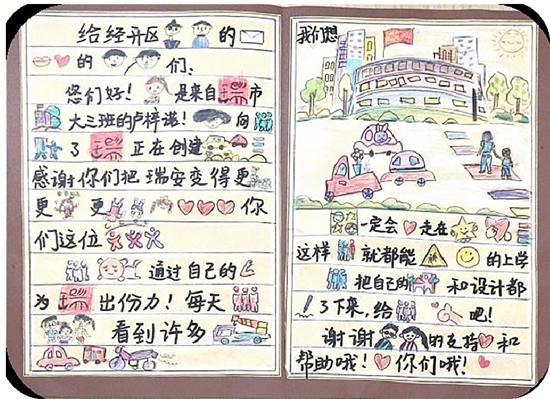 给经开区的
的们:
您们好! 是来自瑞市
大三班的卢梓诺! 向
了瑞正在创建
感谢你们把瑞安变得更
更 更 你
们这位
通过自己的
为瑞出份力! 每天
看到许多
我们想
一定会走在
这样 就都能 的上学
把自己的 和设计都
了下来,给 吧!
谢谢 的支持和
帮助哦! 你们哦!